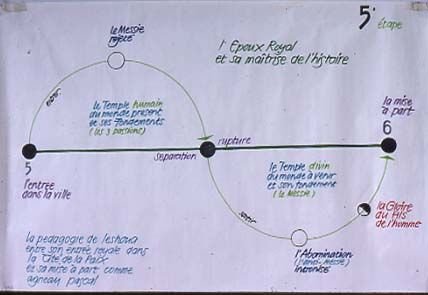 5e
étape
le Messie
rejeté
l'Epoux Royal
et sa maîtrise de l'histoire
le Temple humain
du monde présent
et ses fondements
(les 3 passions)
la mise
à part
6
rupture
separation
5
l'entrée
dans la ville
le Temple divin
du monde à venir
et son fondement
(le Messie)
la Gloire
du Fils
de l'homme
l'Abomination
(l'anti-Messie)
intronisé
la pedagogie de Ieshoua
entre son entrée royale dans
la Cité de la Paix
et sa mise à part comme
agneau pascal